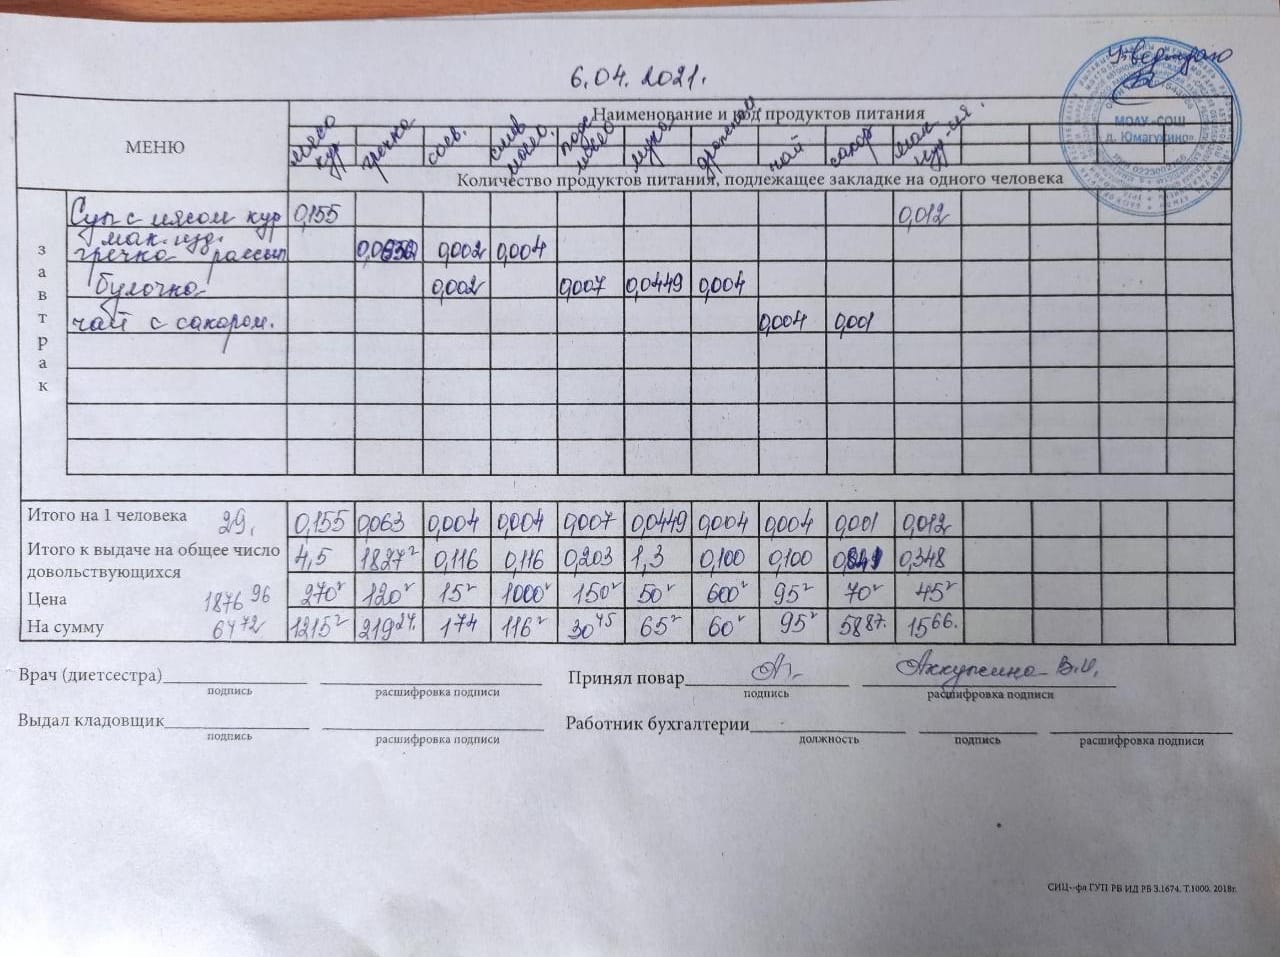 Утверждаю
6.04. 2021.
МЕНЮ
Наименование и код продуктов питания
мясо кур гречка соев. слив масло. подс масло мука дрожжи чай сахар мак-изд-ия.
Количество продуктов питания, подлежащее закладке на одного человека
МОАУ «СОШ
д. Юмагузино»
завтрак
Суп с мясом кур 0,155 0,012
мак. изд.
гречка рассып 0,002 0,004
булочка 0,002 0,007 0,0449 0,004
чай с сахаром. 0,004 0,001
Итого на 1 человека 29. 0,155 0,063 0,004 0,004 0,007 0,0449 0,004 0,004 0,001 0,012
Итого к выдаче на общее число
довольствующихся 4,5 1827² 0,116 0,116 0,203 1,3 0,100 0,100 0,348
Цена 1876 96 270² 120² 15² 1000² 150² 50² 600² 95² 70² 45²
На сумму 64 72 1215² 219 24. 174 116² 30 45 65² 60² 95² 58 87. 15 66.
Врач (диетсестра) Принял повар Аккужина В.И.
подпись расшифровка подписи подпись расшифровка подписи
Выдал кладовщик Работник бухгалтерии
подпись расшифровка подписи должность подпись расшифровка подписи
СИЦ--фл ГУП РБ ИД РБ З.1674. Т.1000. 2018г.